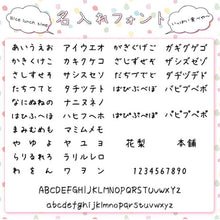 nice lunch time
名入れフォント
いっぱい食べてね
あいうえお アイウエオ がぎぐげご ガギグゲゴ
かきくけこ カキクケコ ざじずぜぞ ザジズゼゾ
さしすせそ サシスセソ だぢづでど ダヂヅデド
たちつてと タチツテト ばびぶべぼ バビブベボ
なにぬねの ナニヌネノ
はひふへほ ハヒフヘホ ぱぴぷぺぽ パピプペポ
まみむめも マミムメモ
や ゆ よ ヤ ユ ヨ 花梨 本舗
らりるれろ ラリルレロ
わ を ん ワ ヲ ン 1234567890
ABCDEFGHIJKLMNOPQRSTUVWXYZ
abcdefghijklmnopqrstuvwxyz